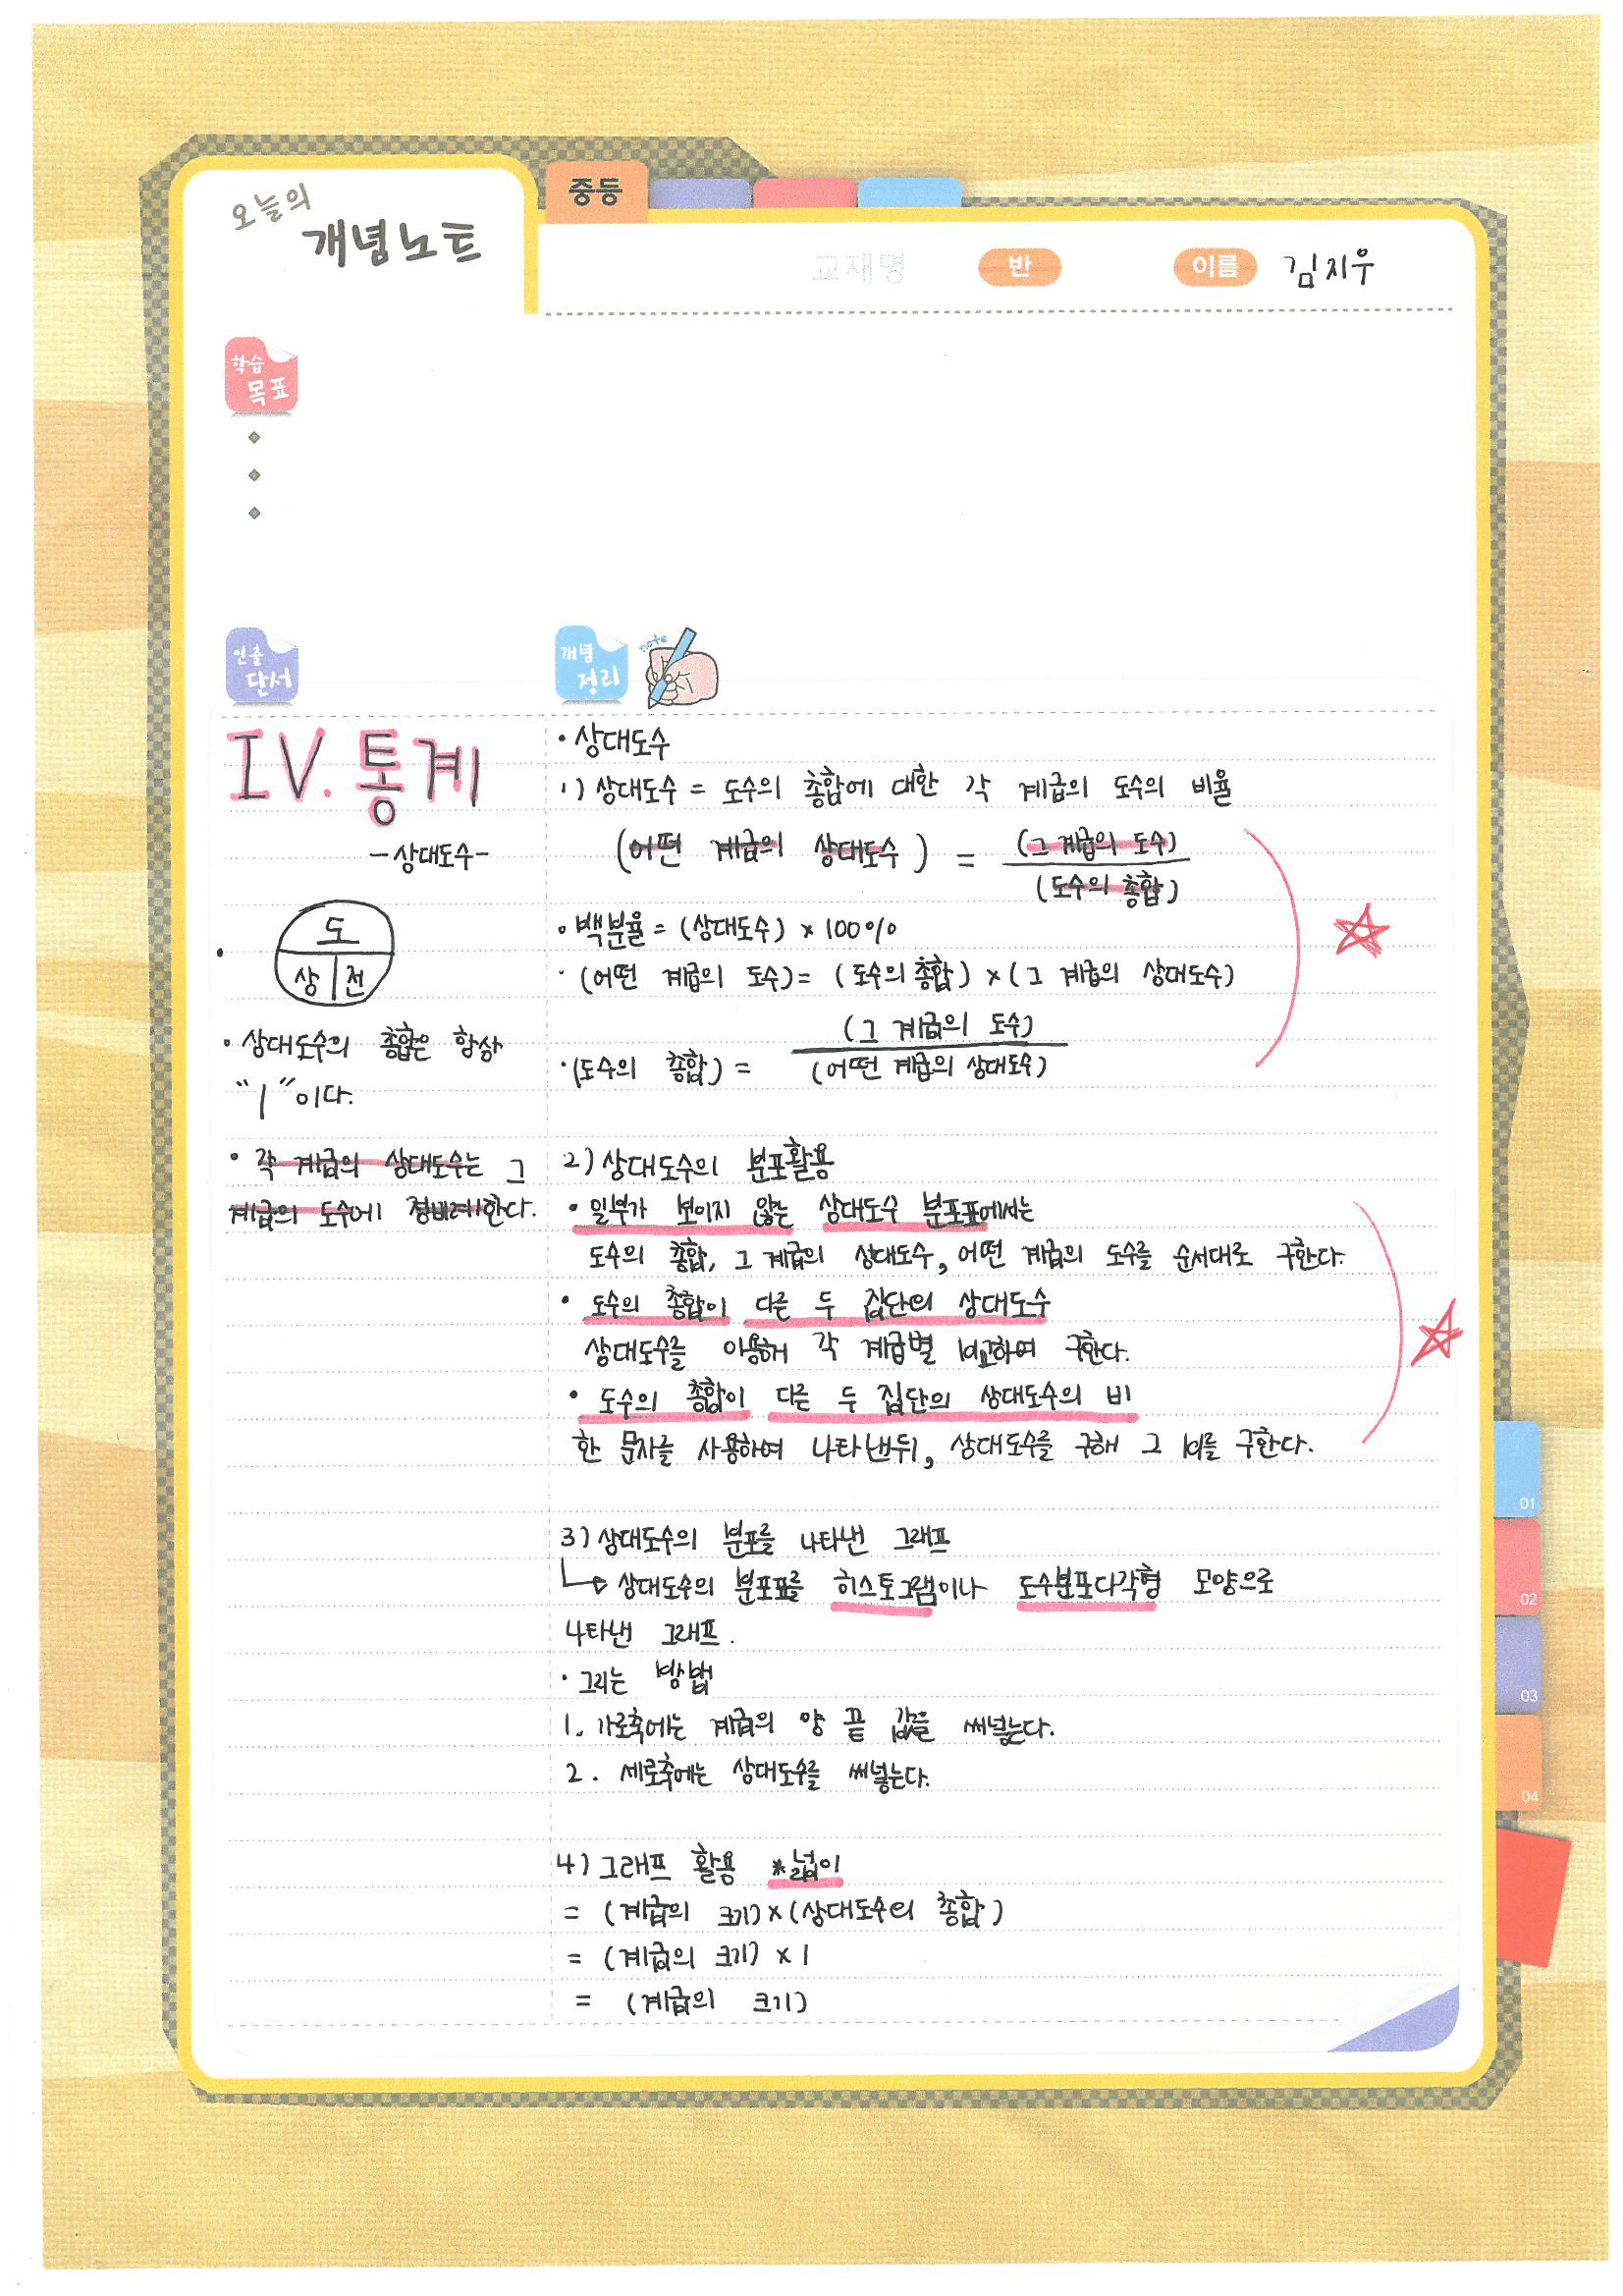 오늘의
개념노트
중등
교재명 반 이름 김지우
학습
목표
인출
단서
개념
정리
note
IV. 통계
-상대도수-
도
상 전
• 상대도수의 총합은 항상
"1"이다.
• 각 계급의 상대도수는 그
계급의 도수에 정비례한다.
• 상대도수
1) 상대도수 = 도수의 총합에 대한 각 계급의 도수의 비율
(어떤 계급의 상대도수) = (그 계급의 도수)
(도수의 총합)
• 백분율 = (상대도수) × 100%
• (어떤 계급의 도수) = (도수의 총합) × (그 계급의 상대도수)
• (도수의 총합) = (그 계급의 도수)
(어떤 계급의 상대도수)
2) 상대도수의 분포활용
• 일부가 보이지 않는 상대도수 분포표에서는
도수의 총합, 그 계급의 상대도수, 어떤 계급의 도수를 순서대로 구한다.
• 도수의 총합이 다른 두 집단의 상대도수
상대도수를 이용하여 각 계급별 비교하여 구한다.
• 도수의 총합이 다른 두 집단의 상대도수의 비
한 문자를 사용하여 나타낸뒤, 상대도수를 구해 그 비를 구한다.
3) 상대도수의 분포를 나타낸 그래프
→ 상대도수의 분포표를 히스토그램이나 도수분포다각형 모양으로
나타낸 그래프.
• 그리는 방법
1. 가로축에는 계급의 양 끝 값을 써넣는다.
2. 세로축에는 상대도수를 써넣는다.
4) 그래프 활용 *넓이
= (계급의 크기) × (상대도수의 총합)
= (계급의 크기) × 1
= (계급의 크기)
01
02
03
04